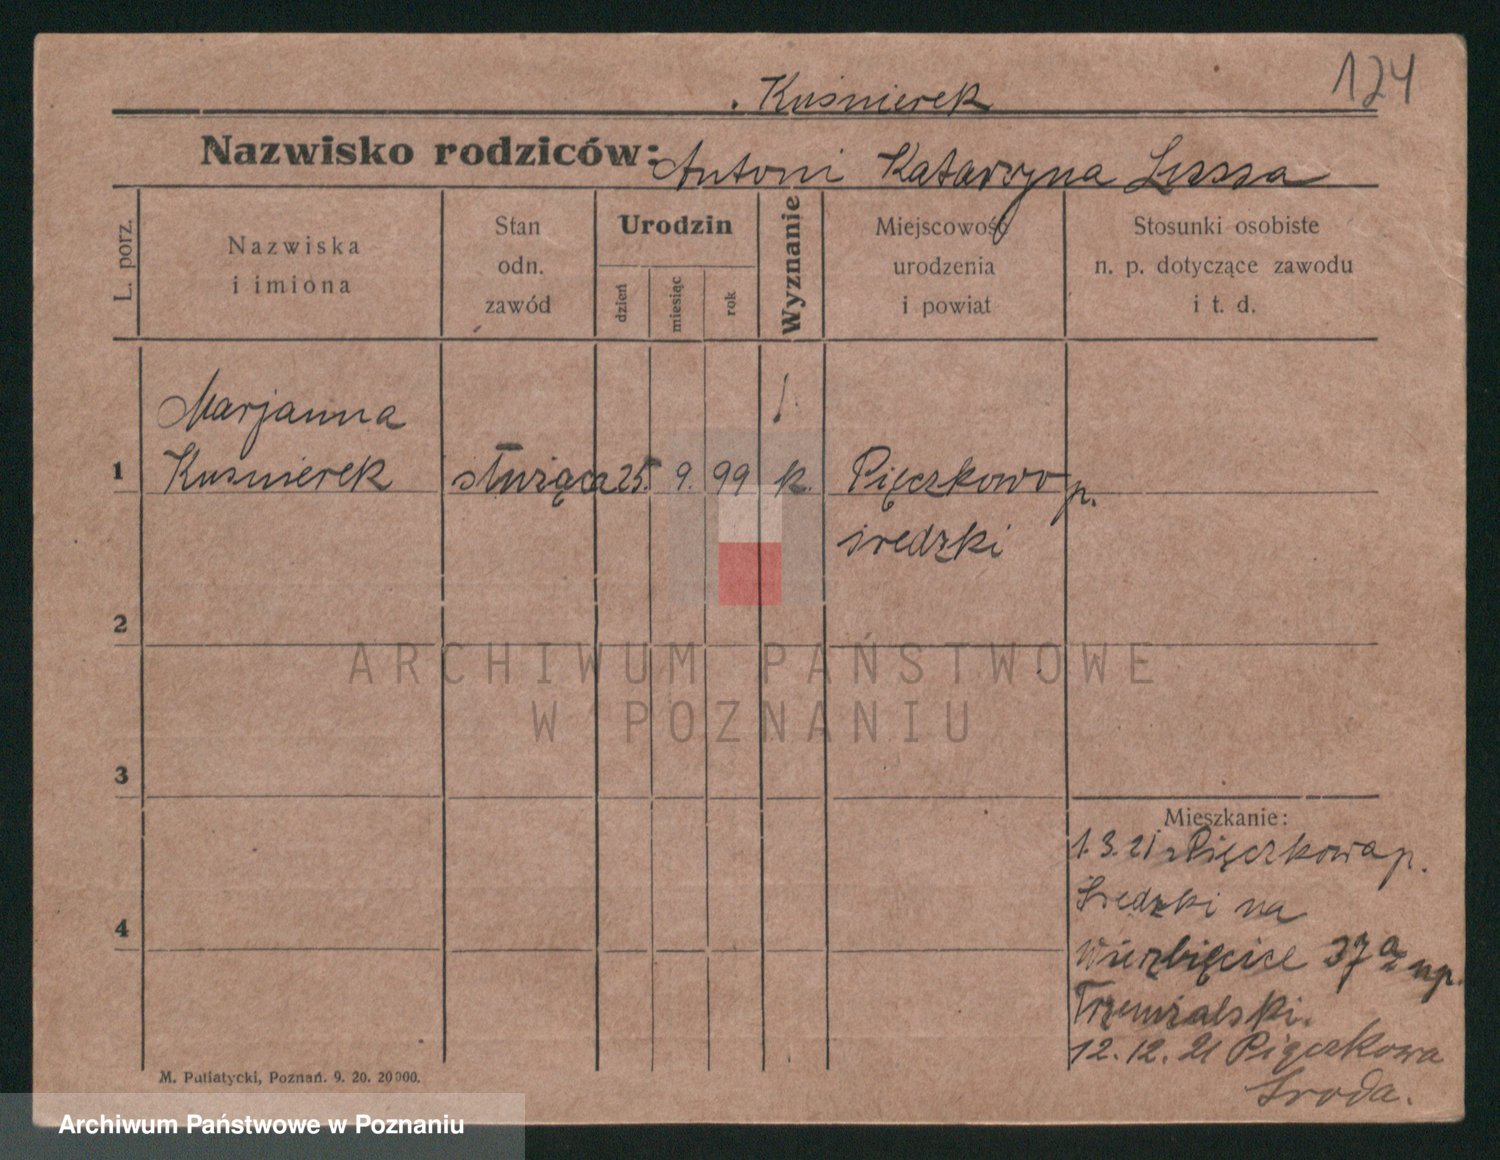 124
Kuśnierek
Nazwisko rodziców: Antoni Katarzyna
L. porz.
Nazwiska i imiona
Stan odn. zawód
Urodzin
dzień
miesiąc
rok
Wyznanie
Miejscowość urodzenia i powiat
Stosunki osobiste n. p. dotyczące zawodu i t. d.
Marjanna
1 Kuśnierek służąca 25. 9. 99 k. Pięczkowo p.
średzki
2
ARCHIWUM PAŃSTWOWE
W POZNANIU
3
Mieszkanie:
1.3.21 z Pięczkowa p.
Średzki na
4
Wierzbięcice 37a
Trzemżalski.
12.12.21 Pięczkowa
Środa.
M. Putiatycki, Poznań. 9. 20. 20000.
Archiwum Państwowe w Poznaniu